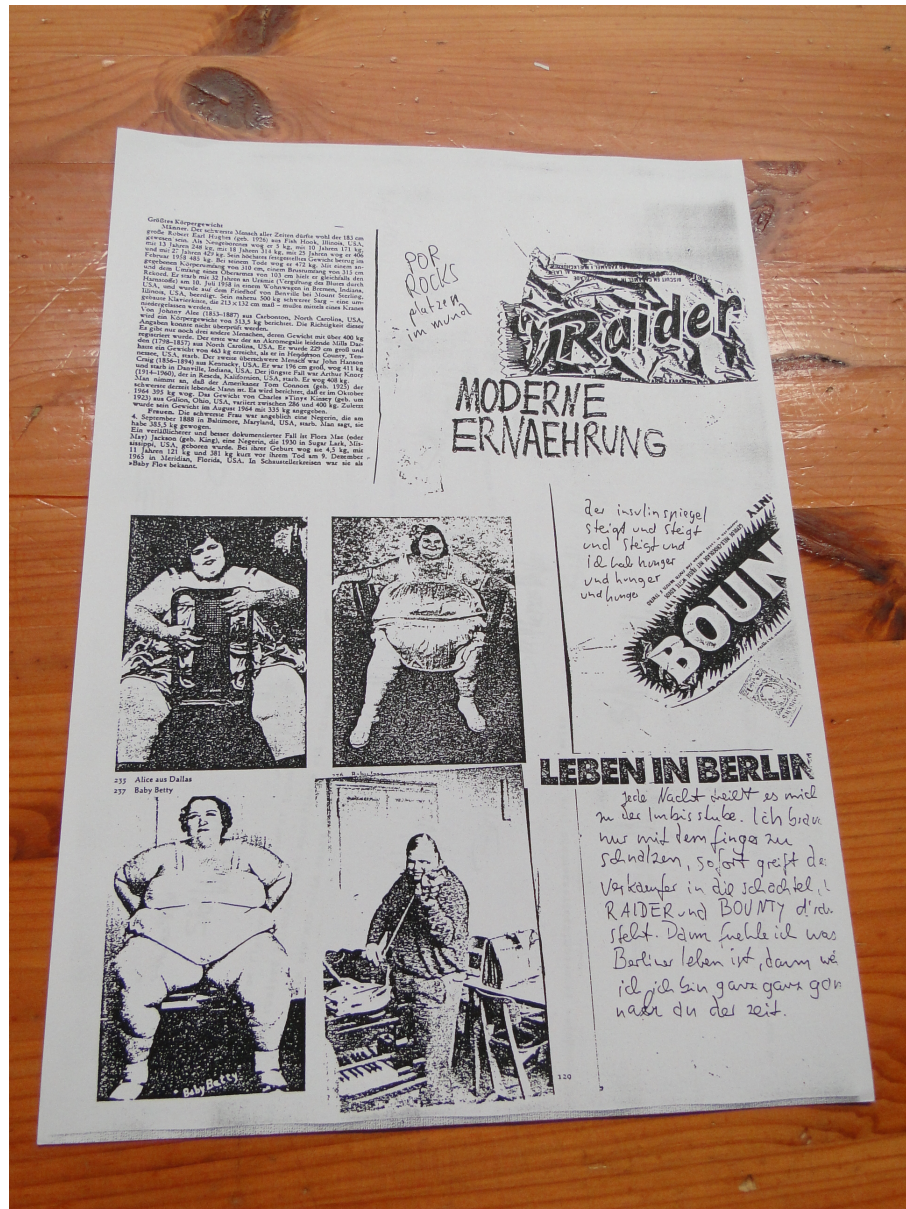 Größtes Körpergewicht
Männer. Der schwerste Mensch aller Zeiten dürfte wohl der 183 cm
große Robert Earl Hughes (geb. 1926) aus Fish Hook, Illinois, USA,
gewesen sein. Als Neugeborenes wog er 5 kg, mit 10 Jahren 171 kg,
mit 13 Jahren 248 kg, mit 18 Jahren 314 kg, mit 25 Jahren wog er 406
und mit 27 Jahren 429 kg. Sein höchstes festgestelltes Gewicht betrug im
Februar 1958 485 kg. Bei seinem Tode wog er 472 kg. Mit einem an-
gegebenen Körperumfang von 310 cm, einem Brustumfang von 315 cm
und dem Umfang eines Oberarmes von 103 cm hielt er gleichfalls den
Rekord. Er starb mit 32 Jahren an Urämie (Vergiftung des Blutes durch
Harnstoffe) am 10. Juli 1958 in einem Wohnwagen in Bremen, Indiana,
USA, und wurde auf dem Friedhof von Benville bei Mount Sterling,
Illinois, USA, beerdigt. Sein nahezu 500 kg schwerer Sarg – eine um-
gebaute Klavierkiste, die 213 x 132 cm maß – mußte mittels eines Kranes
niedergelassen werden.
Von Johnny Alee (1853–1887) aus Carbonton, North Carolina, USA,
wird ein Körpergewicht von 513,5 kg berichtet. Die Richtigkeit dieser
Angaben konnte nicht überprüft werden.
Es gibt nur noch drei andere Menschen, deren Gewicht mit über 400 kg
registriert wurde. Der erste war der an Akromegalie leidende Mills Dar-
den (1798–1857) aus North Carolina, USA. Er wurde 229 cm groß und
hatte ein Gewicht von 463 kg erreicht, als er in Henderson County, Ten-
nessee, USA, starb. Der zweite überschwere Mensch war John Hanson
Craig (1856–1894) aus Kentucky, USA. Er war 196 cm groß, wog 411 kg
und starb in Danville, Indiana, USA. Der jüngste Fall war Arthur Knorr
(1914–1960), der in Reseda, Kalifornien, USA, starb. Er wog 408 kg.
Man nimmt an, daß der Amerikaner Tom Connors (geb. 1925) der
schwerste derzeit lebende Mann ist. Es wird berichtet, daß er im Oktober
1964 395 kg wog. Das Gewicht von Charles »Tiny« Kinsey (geb. um
1923) aus Galion, Ohio, USA, variiert zwischen 286 und 400 kg. Zuletzt
wurde sein Gewicht im August 1964 mit 335 kg angegeben.
Frauen. Die schwerste Frau war angeblich eine Negerin, die am
4. September 1888 in Baltimore, Maryland, USA, starb. Man sagt, sie
habe 385,5 kg gewogen.
Ein verläßlicherer und besser dokumentierter Fall ist Flora Mae (oder
May) Jackson (geb. King), eine Negerin, die 1930 in Sugar Lark, Mis-
sissippi, USA, geboren wurde. Bei ihrer Geburt wog sie 4,5 kg, mit
11 Jahren 121 kg und 381 kg kurz vor ihrem Tod am 9. Dezember
1965 in Meridian, Florida, USA. In Schaustellerkreisen war sie als
»Baby Flo« bekannt.
POP
ROCKS
platzen
im mund
Raider
MODERNE
ERNAEHRUNG
der insulinspiegel
steigt und steigt
und steigt und
ich hab hunger
und hunger
und hunger
BOUN
235 Alice aus Dallas
237 Baby Betty
Baby Betty
120
LEBEN IN BERLIN
jede Nacht treibt es mich
zu der Imbisstube. Ich brau
nur mit dem finger zu
schnalzen, sofort greift der
Verkaeufer in die schachtel,
RAIDER und BOUNTY
steht. Dann fuehle ich was
Berliner leben ist, dann we
ich ich bin ganz ganz gan
nah an der zeit.